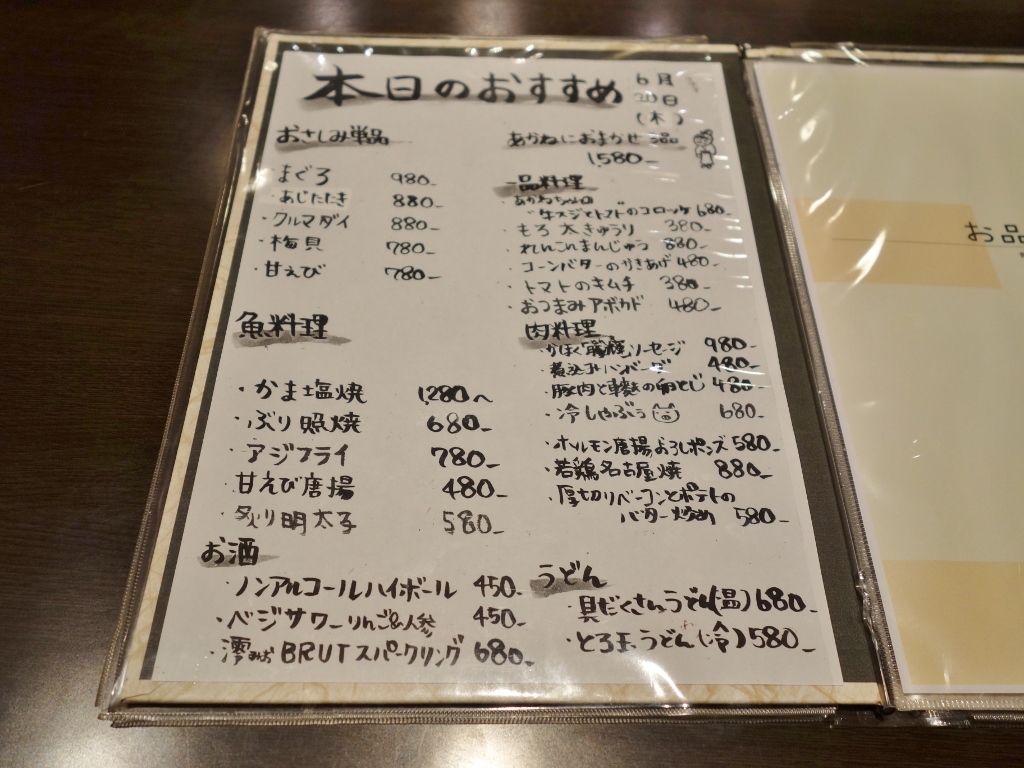 本日のおすすめ
6月
20日
(木)
おさしみ単品
・まぐろ 980-
・あじたたき 880-
・クルマダイ 880-
・梅貝 780-
・甘えび 780-
魚料理
・かま塩焼 1280〜
・ぶり照焼 680-
・アジフライ 780-
・甘えび唐揚 480-
・炙り明太子 580-
お酒
・ノンアルコールハイボール 450-
・ベジサワーりんご&人参 450-
・澪みお BRUTスパークリング 680-
あかねにおまかせ 3品
1,580-
一品料理
・あかねちゃんの
牛スジとトマトのコロッケ 680-
・もろ太きゅうり 380-
・れんこんまんじゅう 880-
・コーンバターのかきあげ 480-
・トマトのキムチ 380-
・おつまみアボカド 480-
肉料理
ソーセージ 980-
・煮込みハンバーグ 480-
・豚肉と の卵とじ 480-
・冷しゃぶぅ 680-
・ホルモン唐揚おろしポンズ 580-
・若鶏名古屋焼 880-
・厚切りベーコンとポテトの
バター炒め 580-
うどん
・具だくさんうどん(温) 680-
・とろ玉うどん(冷) 580-
お品